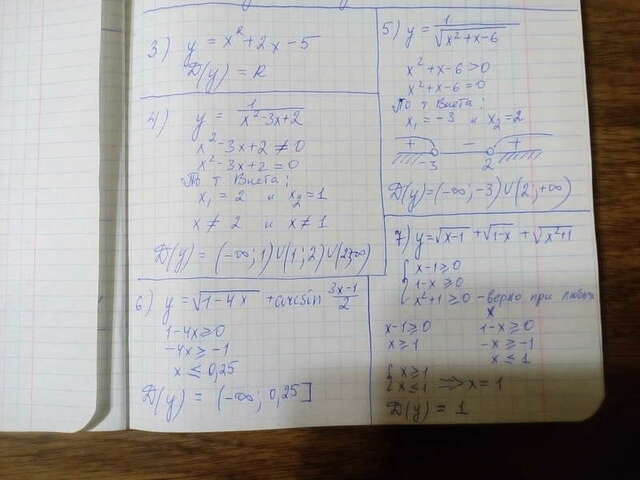 3) y = x² + 2x - 5
D(y) = R
4) y = 1/(x² - 3x + 2)
x² - 3x + 2 ≠ 0
x² - 3x + 2 = 0
По т Виета:
x₁ = 2 и x₂ = 1
x ≠ 2 и x ≠ 1
D(y) = (-∞; 1) ∪ (1; 2) ∪ (2; +∞)
6) y = √(1 - 4x) + arcsin (3x - 1)/2
1 - 4x ≥ 0
-4x ≥ -1
x ≤ 0,25
D(y) = (-∞; 0,25]
5) y = 1/√(x² + x - 6)
x² + x - 6 > 0
x² + x - 6 = 0
По т Виета:
x₁ = -3 и x₂ = 2
+ - +
-3 2
D(y) = (-∞; -3) ∪ (2; +∞)
7) y = √(x - 1) + √(1 - x) + √(x² + 1)
{ x - 1 ≥ 0
1 - x ≥ 0
x² + 1 ≥ 0 - верно при любых
x
x - 1 ≥ 0 1 - x ≥ 0
x ≥ 1 -x ≥ -1
x ≤ 1
{ x ≥ 1
x ≤ 1 ⇒ x = 1
D(y) = 1